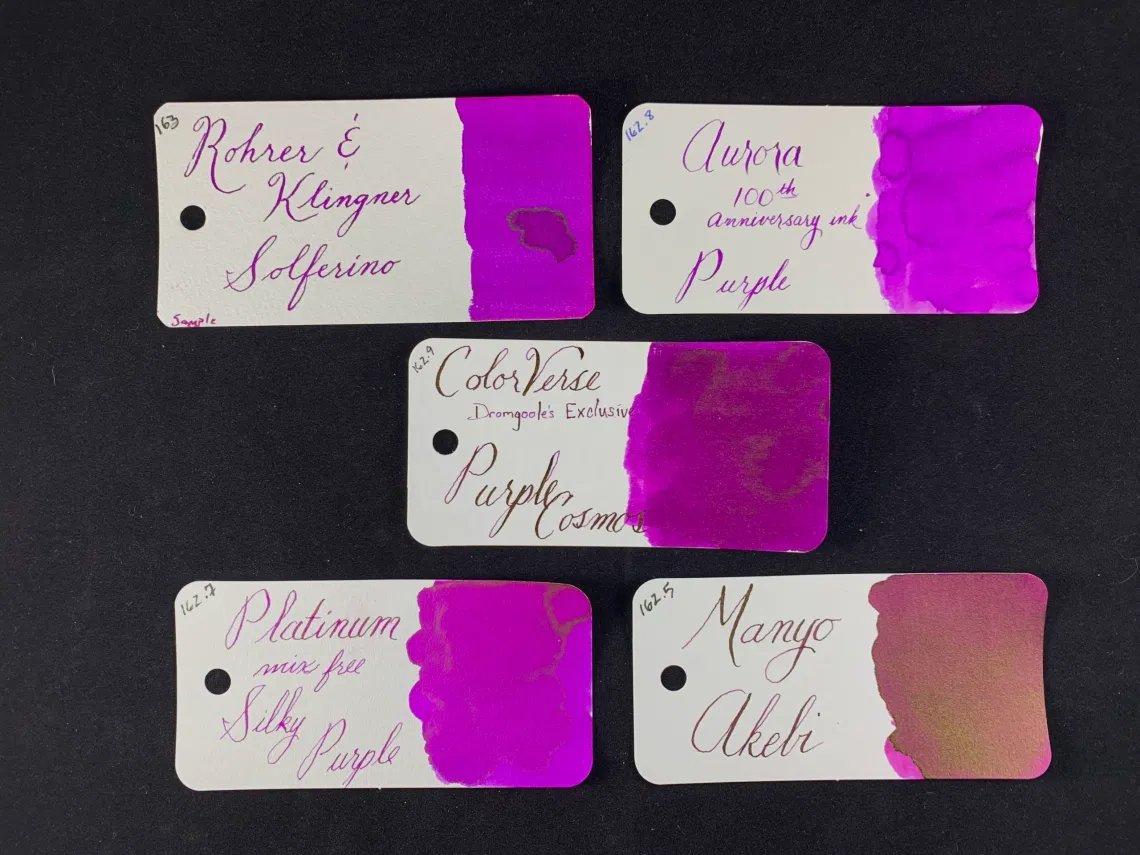 163
Rohrer &
Klingner
Solferino
Sample
162.8
Aurora
100th
anniversary ink
Purple
162.9
ColorVerse
Dromgoole's Exclusive
Purple
Cosmos
162.7
Platinum
mix free
Silky
Purple
162.5
Manyo
Akebi